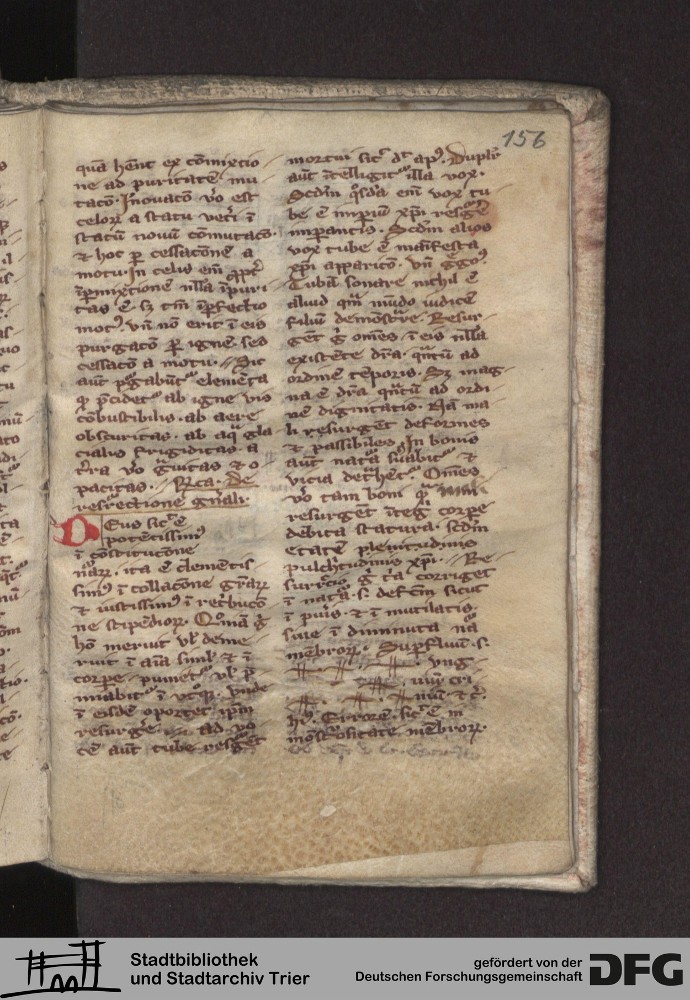 156
quā hēnt ex cōmixtio
ne ad puritatē mu
tacō. Inouacō vo est
celorꝝ a statu vetri ī
statū nouū cōmutacō.
& hoc ꝑ cessacōnē a
motu. In celis em̄ ꝓpt̄
īpmixtionē nlla īpuri
tas ē. sꝫ tm̄ īpfectio
motꝰ. vn̄ nō erit ī eis
purgacō ꝑ ignē sed
cessacō a motu. Sic
aut̄ pgabūt elemēta
ꝙ p̄cidet ab igne vis
cōbustibilis. ab aere
obscuritas. ab aqͣ gla
cialis frigiditas a
t̄ra vo gͣuitas & o
pacitas. Rca. De
resrectionē gn̄ali.
Deus sic̄ ē
potētissimꝰ
ī cōstitucōne
nꝰarꝝ. ita ē clemētis
simꝰ ī collacōne gr̄arꝝ
& iustissimꝰ ī ret̄bucō
ne stipēdiorꝝ. Qm̄ā g̊
hō meruit vl̄ deme
ruit ī aīa siml̄ & ī
corpe
ī eisdē oportet ipm̄
resurgˀe. ad vo
cē aut̄ tube resgˀet
mortui sic̄ dt̄ apꝰ. Duplr̄
aut̄ ītelligitꝰ illa vox.
Scdm̄ qͦsdā em̄ vox tu
be ē impiū xpī resgˀe
impantis. Scdm̄ alios
vox tube ē māifesta
xpī apparicō. vn̄ Gˀgoꝰ
Tubā sonare nichil ē
aliud qm̄ mūdo iudicē
filiū demōst̄re. Resur
gēt g̊ omēs. ī eis nlla
existēte dr̄a. qͣtū ad
ordinē tēporis. Sꝫ mag
na ē dr̄a qͣtū ad ordi
nē dignitatis. Nā ma
li resurgēt deformes
& passibiles. In bonis
aut̄ natͣa suābit & 
vicia det̄het. Omēs
vo tam boni qͣ mali
resurgēt ītegͦ corpe
debita statura. scdm̄
etatē plenitudinis
pulchtudinis xpī. Re
surrcio g̊ t̄ia corriget
ī natͣa. s. defc̄m sicut
ī puis. & ī mutilatis.
siue ī diminuta nͣa
mēbrorꝝ. Supfluū. s.
hꝰ. Errorē. sic̄ ē in
mōstͦositate mēbrorꝝ.
Stadtbibliothek
und Stadtarchiv Trier
gefördert von der
Deutschen Forschungsgemeinschaft
DFG